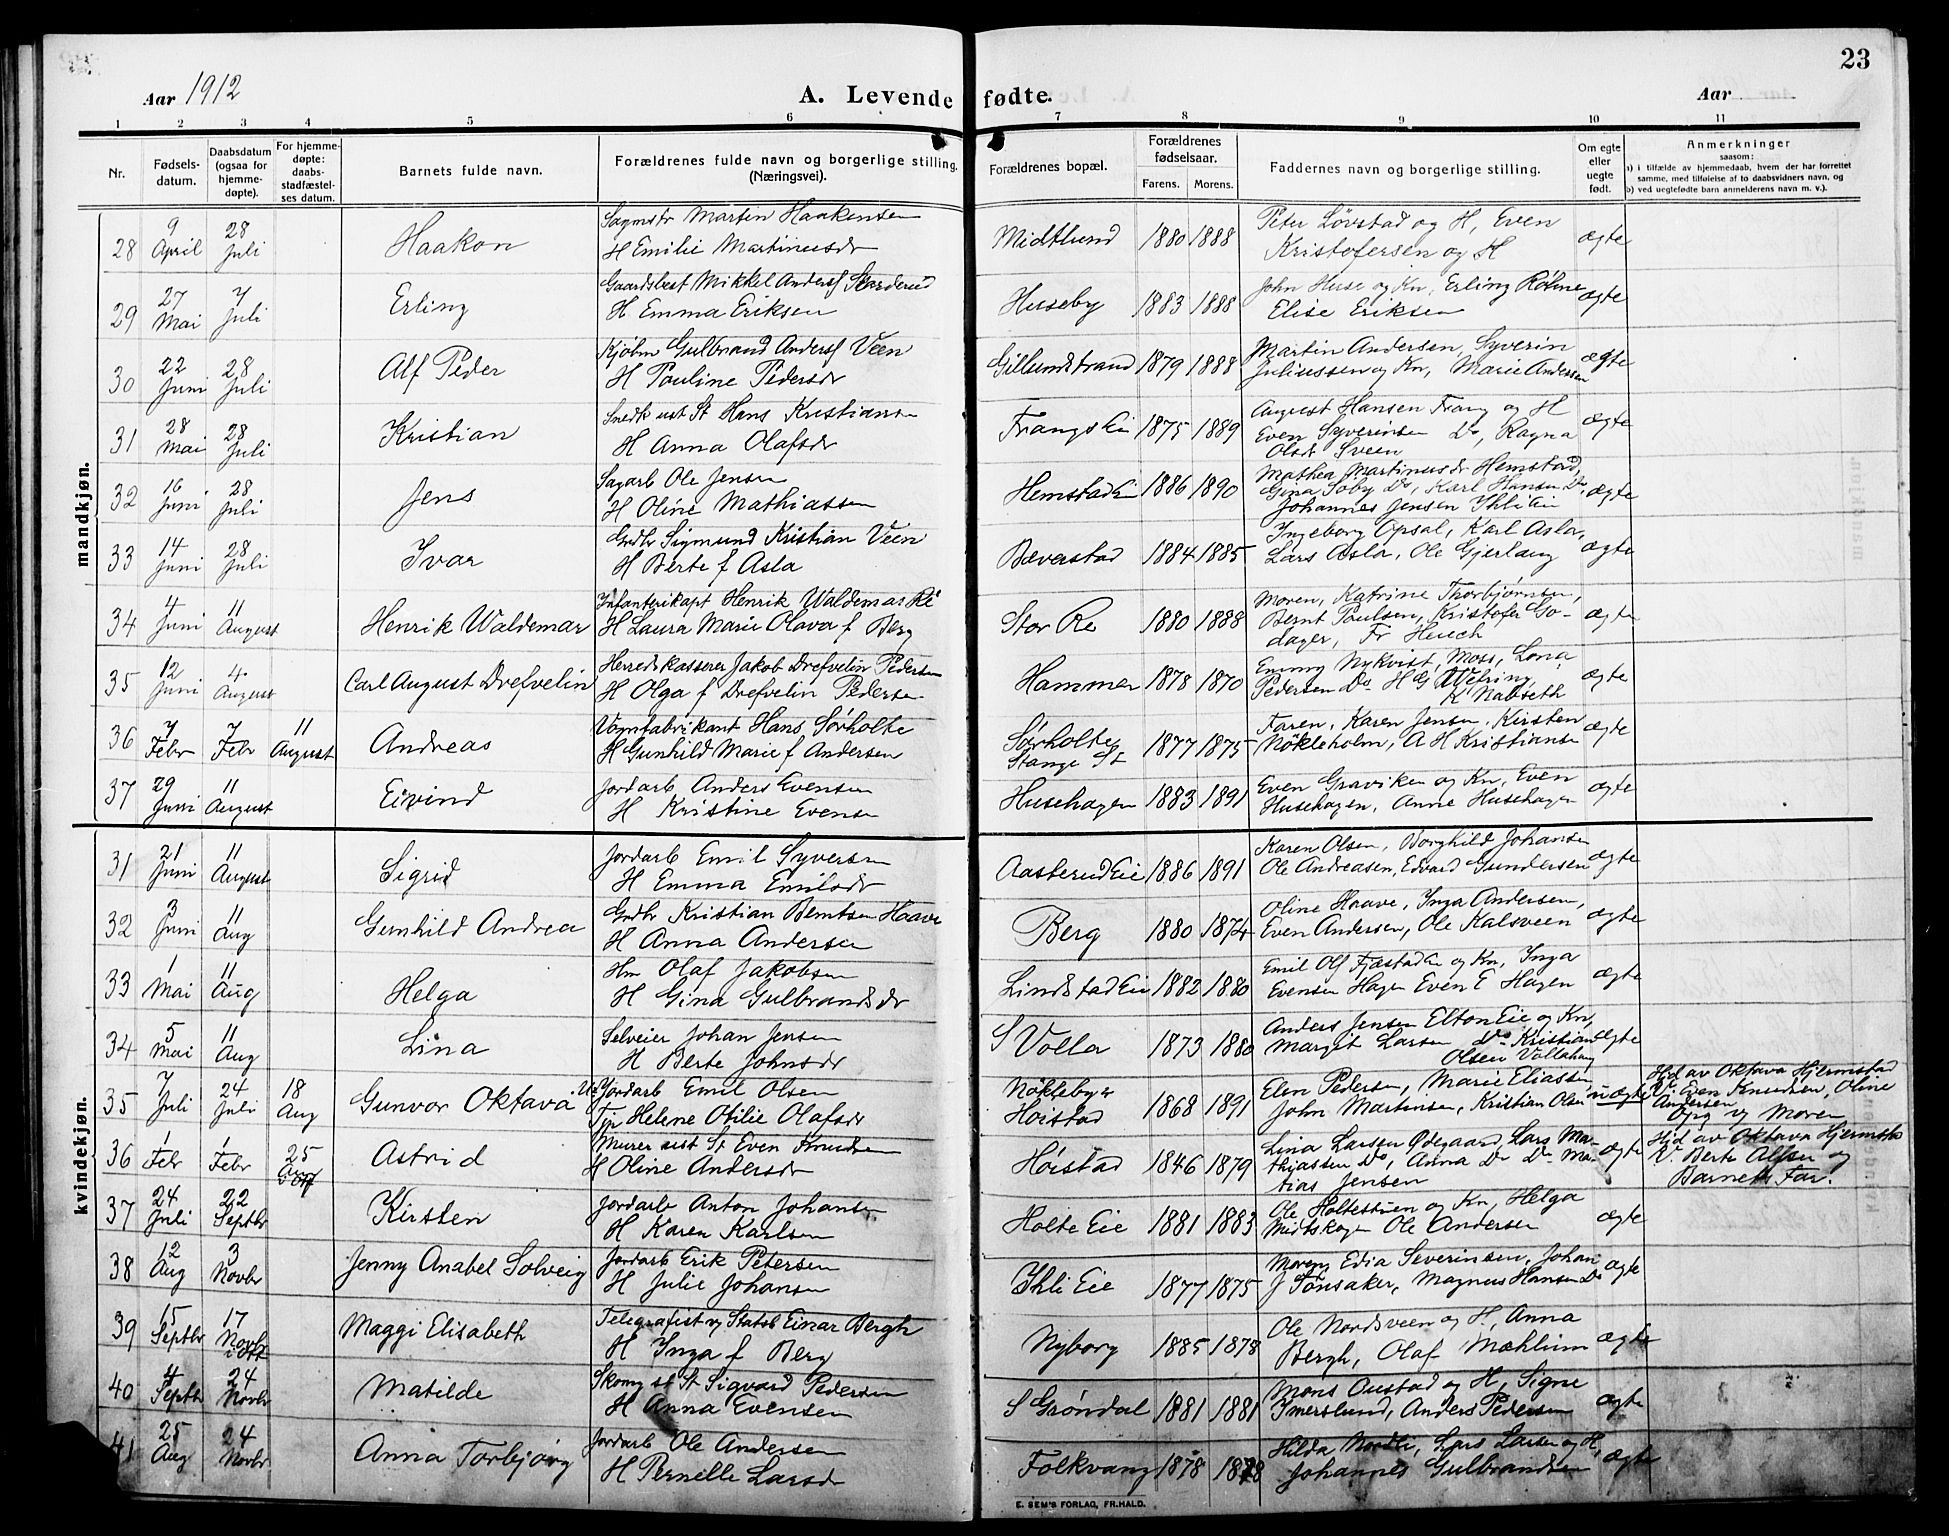 23
Aar 1912
A. Levende fødte.
Aar
1 2 3 4 5 6 7 8 9 10 11
Nr.
Fødsels-datum.
Daabsdatum (ogsaa for hjemme-døpte).
For hjemme-døpte: daabs-stadfæstel-ses datum.
Barnets fulde navn.
Forældrenes fulde navn og borgerlige stilling. (Næringsvei).
Forældrenes bopæl.
Forældrenes fødselsaar.
Farens. Morens.
Faddernes navn og borgerlige stilling.
Om egte eller uegte født.
Anmerkninger
saasom:
a) i tilfælde av hjemmedaab, hvem der har forrettet samme, med tilføielse af to daabsvidners navn, og
b) ved uegtefødte barn anmelderens navn m. v.).
mandkjøn.
28 9 April 28 Juli Haakon Sagmstr Martin Haakensen
H Emilie Martinusdr Midtlund 1880 1888 Peter Løvstad og H, Even
Kristofersen og H ægte
29 27 Mai 7 Juli Erling Gaardsbest Mikkel Anders Skarderud
H Emma Eriksen Huseby 1883 1888 John Huse og Kn, Erling Röhne
Elise Eriksen ægte
30 22 Juni 28 Juli Alf Peder Kjøbm Gulbrand Anders Veen
H Pauline Pedersdr Gillundstrand 1879 1888 Martin Andersen, Syverin
Juliussen og Kn, Marie Andersen ægte
31 28 Mai 28 Juli Kristian Snedk ust St Hans Kristiansen
H Anna Olafsdr Frangs Ei 1875 1889 August Hansen Frang og H
Even Syverinsen Do, Ragna
Olsdr Sveen ægte
32 16 Juni 28 Juli Jens Sagarb Ole Jensen
H Oline Mathiassen Hemstad Ei 1886 1890 Mathea Martinusdr Hemstad,
Gina Søby Do, Karl Hansen Do
Johannes Jensen Ihli Ei ægte
33 14 Juni 28 Juli Ivar Grdbr Sigmund Kristian Veen
H Berte f Asla Bæverstad 1884 1885 Ingeborg Opsal, Karl Asla,
Lars Asla, Ole Gjerlaug ægte
34 4 Juni 11 August Henrik Waldemar Infanterikapt Henrik Waldemar Re
H Laura Marie Olava f Berg Stor Re 1880 1888 Moren, Katrine Thorbjørnsen,
Bernt Paulsen, Kristofer Go-
dager, Fr Heuch ægte
35 12 Juni 4 August Carl August Drefvelin Herredskasserer Jakob Drefvelin Pedersen
H Olga f Drefvelin Pedersen Hammer 1878 1870 Emmy Nykvist, Moss, Lona
Pedersen Do H G Wefring,
K Nabseth ægte
36 7 Febr 7 Febr 11 August Andreas Vognfabrikant Hans Sørholte
H Gunhild Marie f Andersen Sørholte
Stange St 1877 1875 Faren, Karen Jensen, Kirsten
Nökleholm, A H Kristiansen ægte
37 29 Juni 11 August Eivind Jordarb Anders Evensen
H Kristine Evensen Husehagen 1883 1891 Even Graviken og Kn, Even
Husehagen, Anne Husehagen ægte
kvindekjøn.
31 21 Juni 11 August Sigrid Jordarb Emil Syversen
H Emma Emilsdr Aasterud Eie 1886 1891 Karen Olsen, Borghild Johansen
Ole Andreasen, Edvard Gundersen ægte
32 3 Juni 11 Aug Gunhild Andrea Grdbr Kristian Berntsen Haave
H Anna Andersen Berg 1880 1874 Oline Haave, Inga Andersen,
Even Andersen, Ole Kalsveen ægte
33 1 Mai 11 Aug Helga Hm Olaf Jakobsen
H Gina Gulbrandsdr Lindstad Eie 1882 1880 Emil Ols Fjæstad Ei og Kn, Inga
Evensen Hagen Even E Hagen ægte
34 5 Mai 11 Aug Lina Selveier Johan Jensen
H Berte Johnsdr S Volla 1873 1880 Anders Jensen Elton Eie og Kn,
Margit Larsen Do Kristian
Olsen Vollahaug ægte
35 7 Juli 24 Juli 18 Aug Gunvor Oktava Jordarb Emil Olsen
Tp Helene Otilie Olafsdr Nøkleby er
Hoistad 1868 1891 Elen Pedersen, Marie Eliassen
John Martinsen, Kristian Olsen uægte Hjd av Oktava Hjermstad
V. Even Knudsen, Oline
Andersen
Opg og Moren
36 1 Febr 1 Febr 25 Aug Astrid Murer ust St Even Knudsen
H Oline Andersdr Høistad 1846 1879 Lina Larsen Ødegaard, Lars Ma-
thiassen Do, Anna Do Do Ma-
tias Jensen ægte Hjd av Oktava Hjermstad
V. Berte Alfsen og
Barnets Far.
37 24 Juli 22 Septbr Kirsten Jordarb Anton Johansen
H Karen Karlsen Holte Eie 1881 1883 Ole Holtestuen og Kn, Helga
Midtskogen Ole Andersen ægte
38 12 Aug 3 Novbr Jenny Anabel Solveig Jordarb Erik Petersen
H Julie Johansen Ihli Eie 1877 1875 Moren, Edia Severinsen, Johan
J Tönsaker, Magnus Hansen Do ægte
39 15 Septbr 17 Novbr Maggi Elisabeth Telegrafist v Statsb Einar Bergh
H Inga f Berg Nyborg 1885 1878 Ole Nordsveen og H, Anna
Bergh, Olaf Mæhlum ægte
40 4 Septbr 24 Novbr Matilde Skomg st St Sigvard Pedersen
H Anna Evensen S Grøndal 1881 1881 Mons Oustad og H, Signe
Imerslund, Anders Pedersen ægte
41 25 Aug 24 Novbr Anna Torbjørg Jordarb Ole Andersen
H Pernelle Larsdr Folkvang 1878 1878 Hilda Nordli, Lars Larsen og H,
Johannes Gulbrandsen ægte
E. SEM'S FORLAG, FR.HALD.